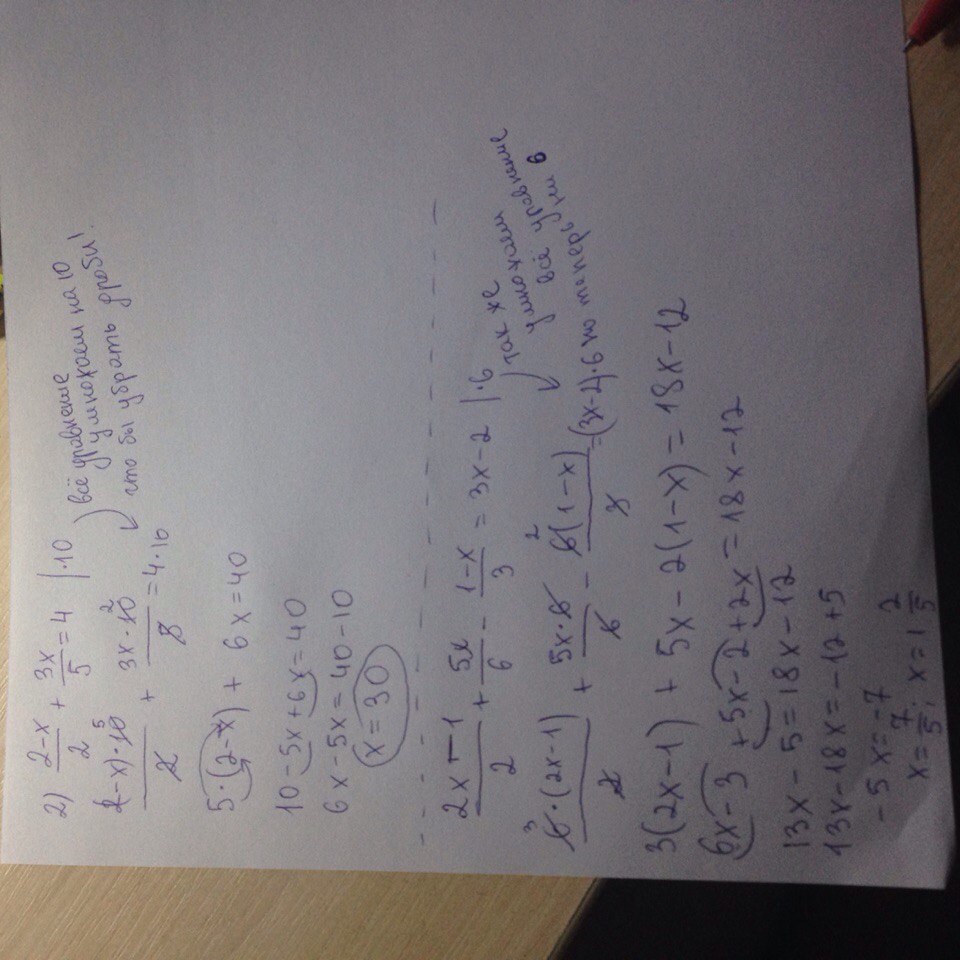 2) (2-x)/2 + 3x/5 = 4 | ·10 всё уравнение
умножаем на 10
что бы убрать дроби!
(2-x)·10⁵/2 + 3x·10²/5 = 4·10
5·(2-x) + 6x = 40
10 - 5x + 6x = 40
6x - 5x = 40 - 10
x = 30
(2x-1)/2 + 5x/6 - (1-x)/3 = 3x - 2 | ·6 так же
умножаем
всё уравнение
но теперь на 6
³6·(2x-1)/2 + 5x·6/6 - ²6(1-x)/3 = (3x-2)·6
3(2x-1) + 5x - 2(1-x) = 18x - 12
6x - 3 + 5x - 2 + 2x = 18x - 12
13x - 5 = 18x - 12
13x - 18x = -12 + 5
-5x = -7
x = 7/5; x = 1 2/5